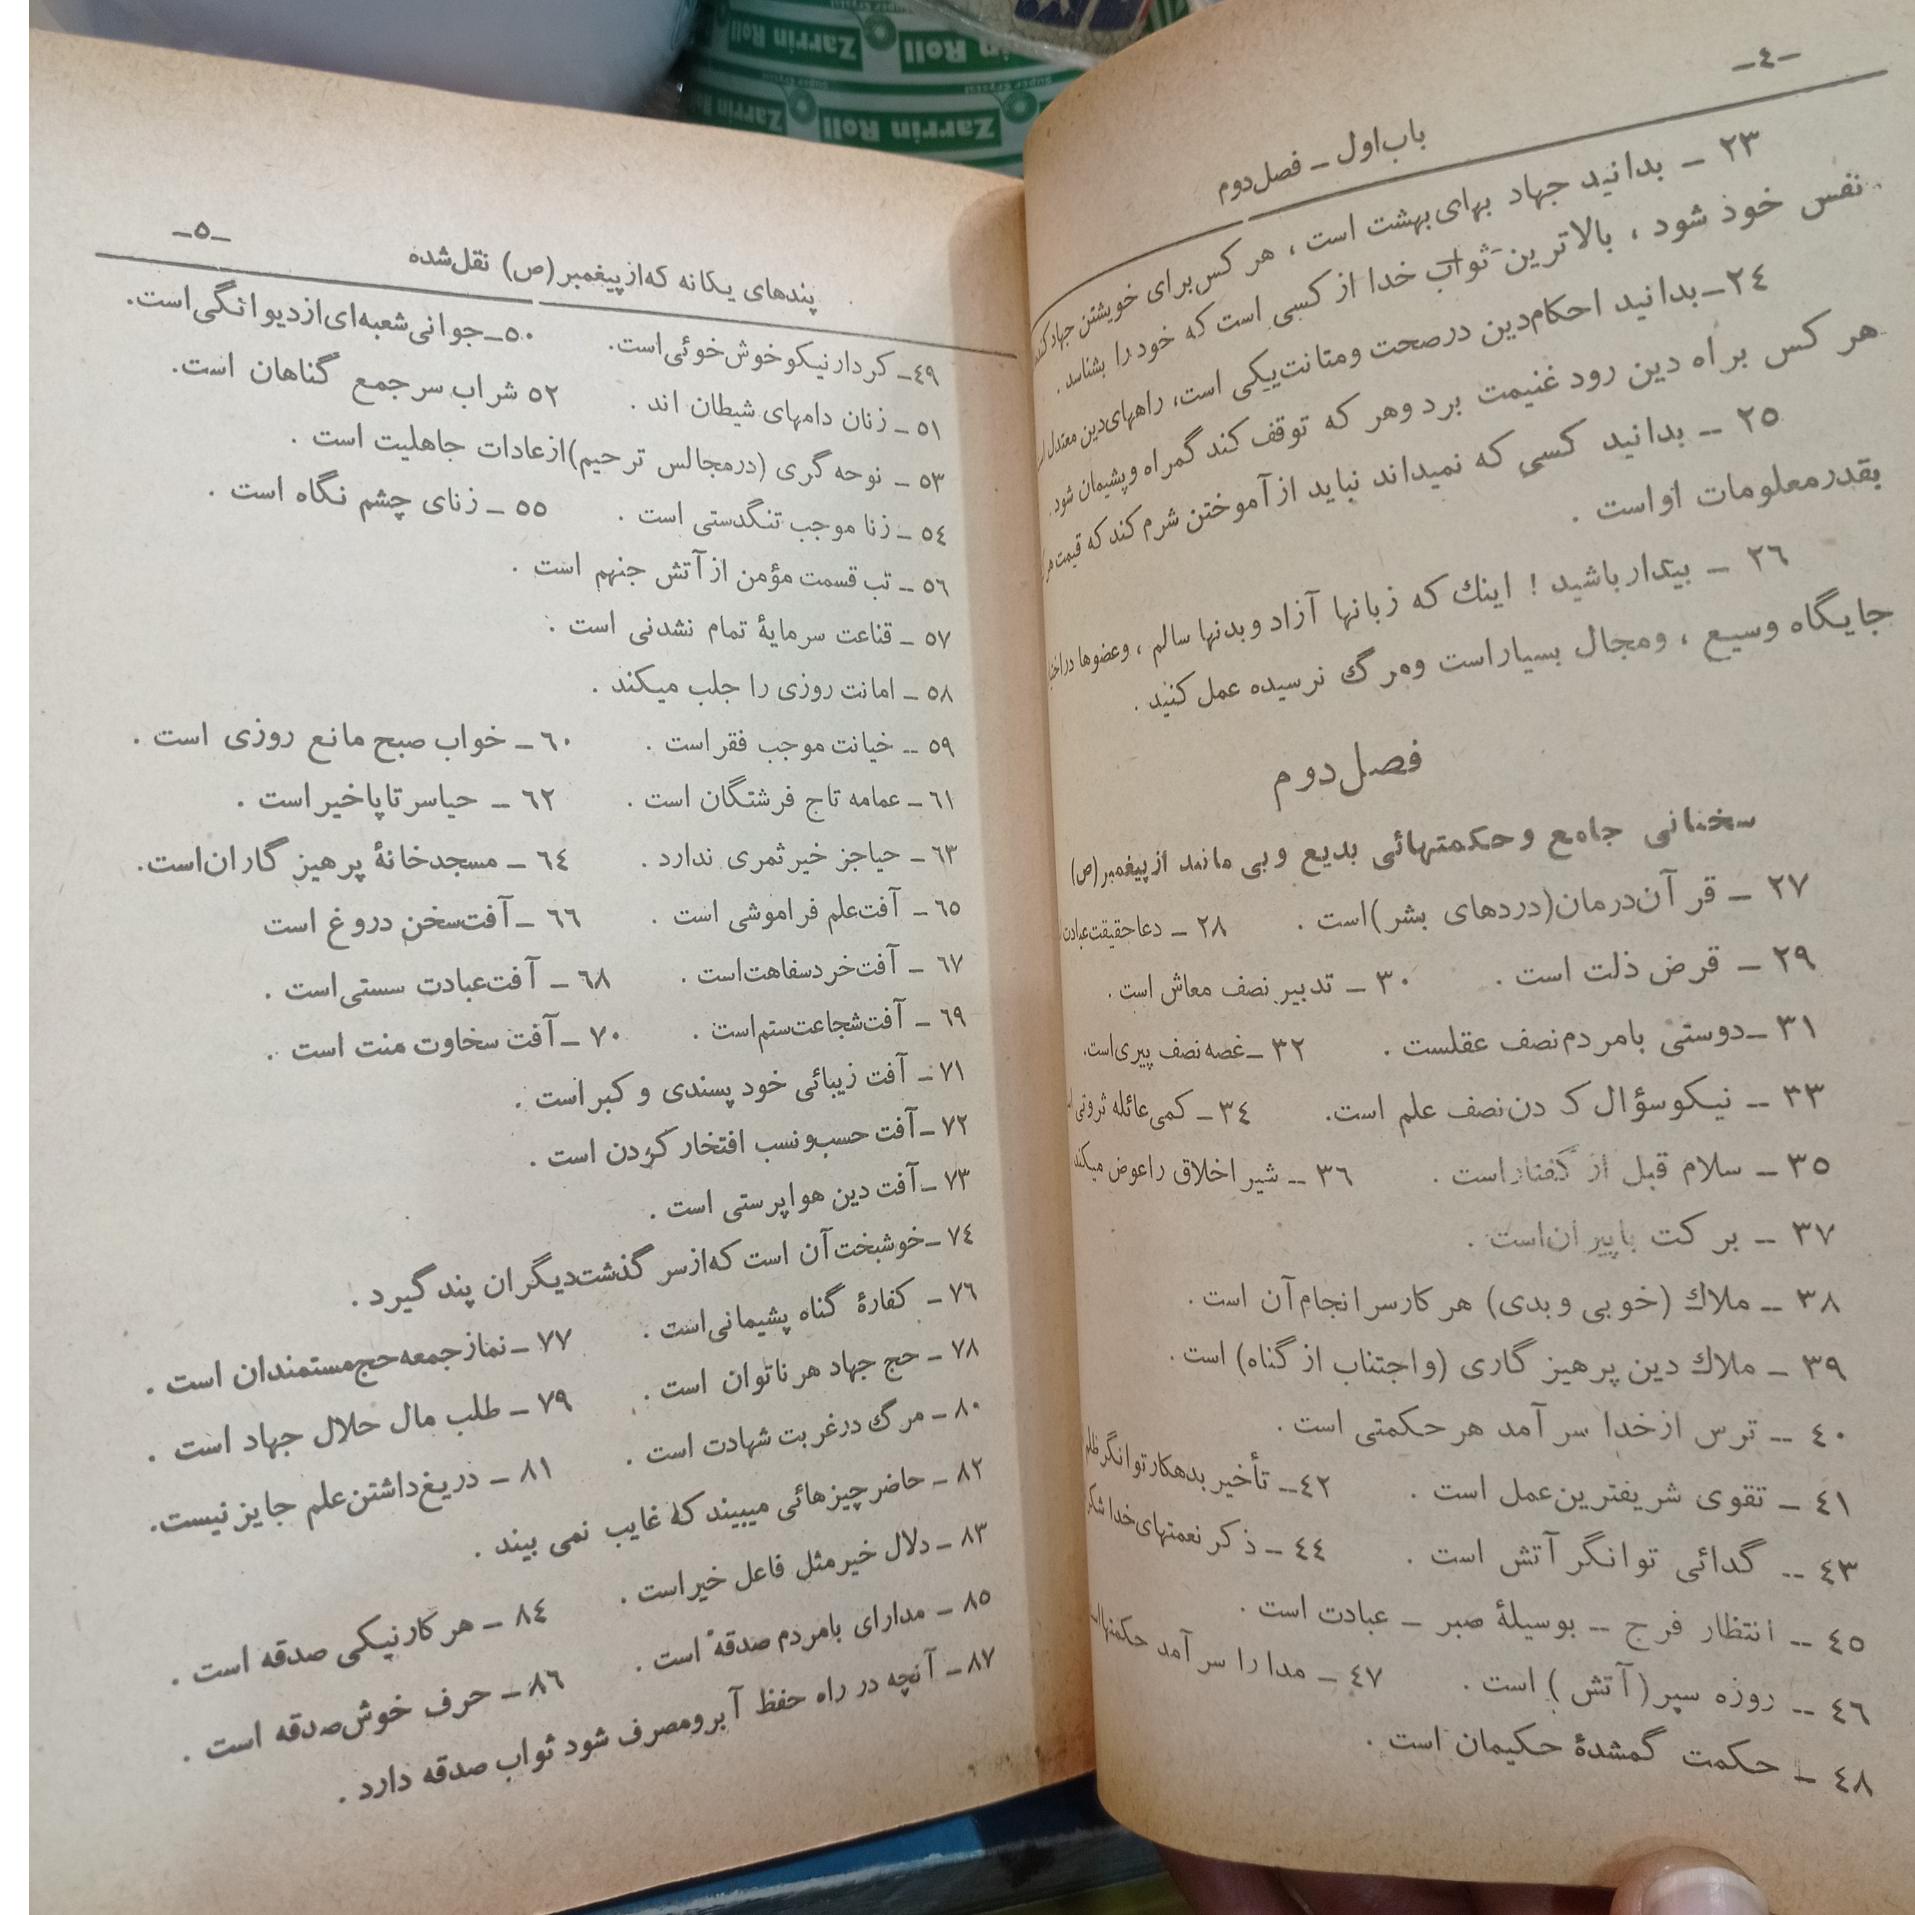 Zarrin Roll
Super Crystal
Zarrin Roll
Zarrin Roll
Zarrin Roll
-٤-
باب اول - فصل دوم
٢٣ - بدانید جهاد بهای بهشت است ، هر کس برای خویشتن جهاد کند
نفس خود شود ، بالاترین ثواب خدا از کسی است که خود را بشناسد .
٢٤- بدانید احکام دین در صحت و متانت یکی است، راههای دین معتدل
هر کس براه دین رود غنیمت برد وهر که توقف کند گمراه و پشیمان شود .
٢٥ -- بدانید کسی که نمیداند نباید از آموختن شرم کند که قیمت
بقدر معلومات او است .
٢٦ - بیدار باشید ! اینك که زبانها آزاد و بدنها سالم ، وعضوها
جایگاه وسیع ، ومجال بسیار است ومرگ نرسیده عمل کنید .
فصل دوم
سخنانی جامع و حکمتهائی بدیع و بی مانند از پیغمبر (ص)
٢٧ - قرآن درمان (دردهای بشر) است . ٢٨ - دعا حقیقت عبادت
٢٩ - قرض ذلت است . ٣٠ - تدبیر نصف معاش است .
٣١ - دوستی بامردم نصف عقلست . ٣٢ - غصه نصف پیری است.
٣٣ -- نیکو سؤال ک دن نصف علم است. ٣٤ - کمی عائله ثروتی
٣٥ - سلام قبل از گفتار است . ٣٦ -- شیر اخلاق را عوض میکند
٣٧ -- برکت با پیران است .
٣٨ -- ملاك (خوبی وبدی) هر کار سرانجام آن است .
٣٩ - ملاك دین پرهیز گاری (و اجتناب از گناه) است .
٤٠ -- ترس از خدا سر آمد هر حکمتی است .
٤١ - تقوی شریفترین عمل است . ٤٢-- تأخیر بدهکار توانگر
٤٣ -- گدائی توانگر آتش است . ٤٤ - ذکر نعمتهای خدا
٤٥ -- انتظار فرج -- بوسیلهٔ صبر - عبادت است .
٤٦ -- روزه سپر (آتش) است . ٤٧ - مدارا سر آمد
٤٨ - حکمت گمشدهٔ حکیمان است .
-٥-
پندهای یکانه که از پیغمبر (ص) نقل شده
٤٩- کردار نیکو خوش خوئی است. ٥٠- جوانی شعبه ای از دیوانگی است.
٥١ - زنان دامهای شیطان اند . ٥٢ شراب سر جمع گناهان است.
٥٣ - نوحه گری (در مجالس ترحیم) از عادات جاهلیت است .
٥٤ - زنا موجب تنگدستی است . ٥٥ - زنای چشم نگاه است .
٥٦ - تب قسمت مؤمن از آتش جنهم است .
٥٧ - قناعت سرمایهٔ تمام نشدنی است .
٥٨ - امانت روزی را جلب میکند .
٥٩ -- خیانت موجب فقر است . ٦٠ - خواب صبح مانع روزی است .
٦١ - عمامه تاج فرشتگان است . ٦٢ - حیا سر تا پا خیر است .
٦٣ - حیا جز خیر ثمری ندارد . ٦٤ - مسجد خانهٔ پرهیز گاران است.
٦٥ - آفت علم فراموشی است . ٦٦ - آفت سخن دروغ است
٦٧ - آفت خرد سفاهت است . ٦٨ - آفت عبادت سستی است .
٦٩ - آفت شجاعت ستم است . ٧٠ - آفت سخاوت منت است .
٧١ - آفت زیبائی خود پسندی و کبر است .
٧٢ - آفت حسب و نسب افتخار کردن است .
٧٣ - آفت دین هوا پرستی است .
٧٤ - خوشبخت آن است که از سر گذشت دیگران پند گیرد .
٧٦ - کفارهٔ گناه پشیمانی است . ٧٧ - نماز جمعه حج مستمندان است .
٧٨ - حج جهاد هر ناتوان است . ٧٩ - طلب مال حلال جهاد است .
٨٠ - مرگ در غربت شهادت است . ٨١ - دریغ داشتن علم جایز نیست.
٨٢ - حاضر چیزهائی میبیند که غایب نمی بیند .
٨٣ - دلال خیر مثل فاعل خیر است . ٨٤ - هر کار نیکی صدقه است .
٨٥ - مدارای بامردم صدقه است . ٨٦ - حرف خوش صدقه است .
٨٧ - آنچه در راه حفظ آبرو مصرف شود ثواب صدقه دارد .